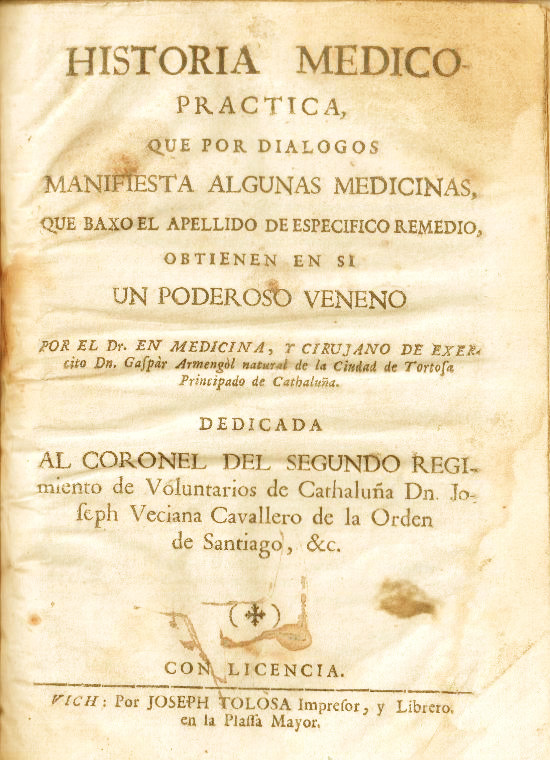 HISTORIA MEDICO-
PRACTICA,
QUE POR DIALOGOS
MANIFIESTA ALGUNAS MEDICINAS,
QUE BAXO EL APELLIDO DE ESPECIFICO REMEDIO,
OBTIENEN EN SI
UN PODEROSO VENENO
POR EL Dr. EN MEDICINA, Y CIRUJANO DE EXER-
cito Dn. Gaſpàr Armengòl natural de la Ciudad de Tortoſa
Principado de Cathaluña.
DEDICADA
AL CORONEL DEL SEGUNDO REGI-
miento de Voluntarios de Cathaluña Dn. Jo-
ſeph Veciana Cavallero de la Orden
de Santiago, &c.
(✣)
CON LICENCIA.
VICH: Por JOSEPH TOLOSA Impreſor, y Librero.
en la Plaſſa Mayor.